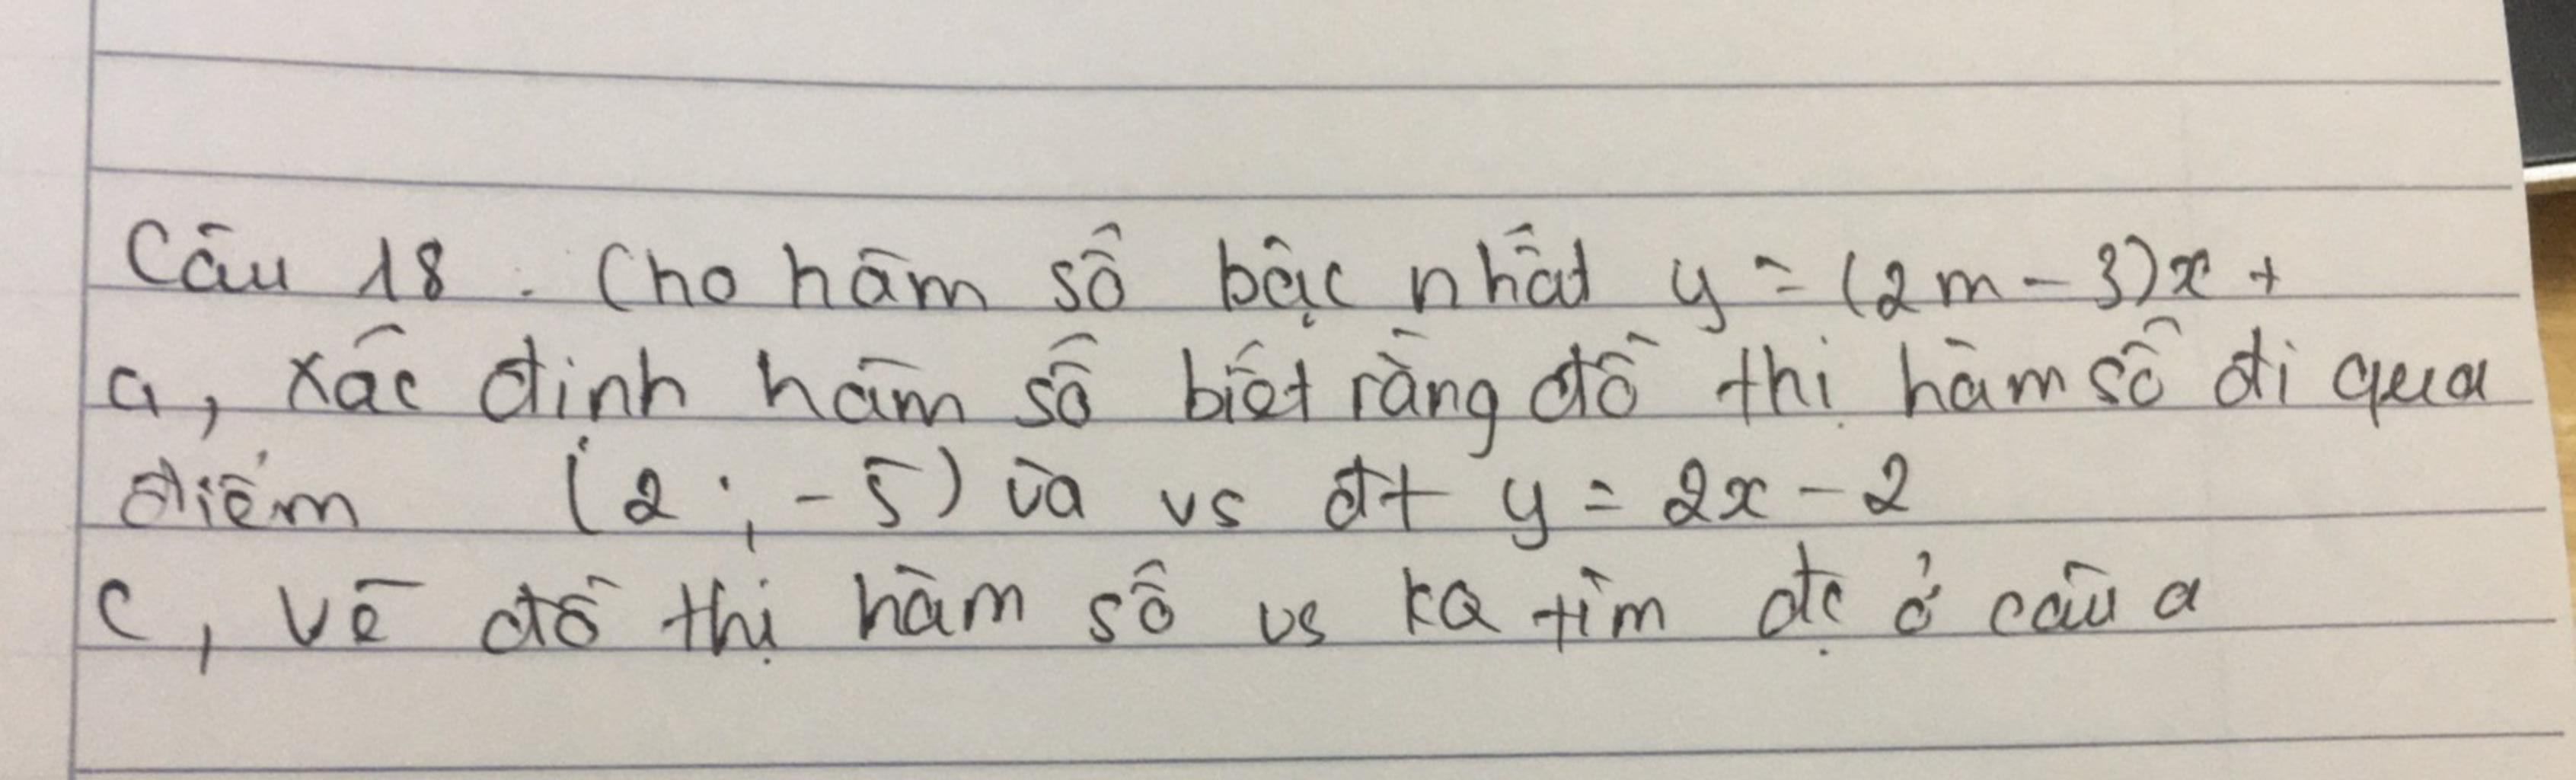 Câu 18. Cho hàm số bậc nhất y = (2m - 3)x +
a, xác định hàm số biết rằng đồ thị hàm số đi qua
điểm (2 ; -5) và vs đt y = 2x - 2
c, vẽ đồ thị hàm số vs KQ tìm đc ở câu a